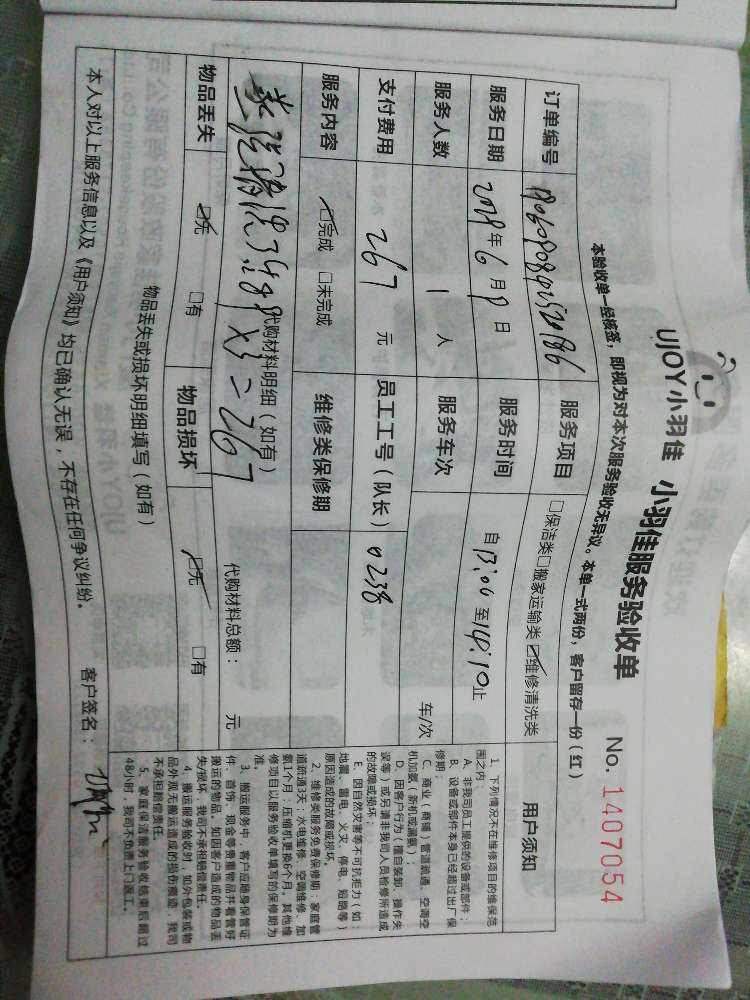 UJOY小羽佳 小羽佳服务验收单 No. 1407054
本验收单一经核签，即视为对本次服务验收无异议。本单一式两份，客户留存一份（红）
订单编号
服务项目 □保洁类□搬家运输类☑维修清洗类
服务日期 2018年6月8日
服务时间 自13:00至14:10止
服务人数 1 人
服务车次 车/次
支付费用 267 元
员工工号（队长） 0238
服务内容 ☑完成 □未完成
维修类保修期
代购材料明细（如有）
89×3=267
代购材料总额： 元
物品丢失 ☑无 □有
物品损坏 ☑无 □有
物品丢失或损坏明细填写（如有）
本人对以上服务信息以及《用户须知》均已确认无误，不存在任何争议纠纷。 客户签名：
用户须知
1、下列情况不在维修项目的维保范
围之内：
A、非我司员工提供的设备或部件；
B、设备或部件本身已经超过出厂保
修期；
C、商业（商铺）管道疏通、空调空
机加氨（新机或漏氨）；
D、因客户行为（擅自装卸、操作失
误等）或另请非我司人员检修所造成
的故障或损坏；
E、因自然灾害等不可抗拒力（如：
地震、雷电、火灾、停电、短路等）
原因造成的故障或损坏。
2、维修类服务免费保修期：家庭管
道疏通3天；水电维修、空调维修、加
氨1个月；压缩机更换6个月。其他维
修项目以服务验收单填写的保修期为
准。
3、搬运服务中，客户应随身保管证
件、首饰、现金等贵重物品并看管好
搬运的物品。如因客户造成的物品丢
失/损坏，我司不承担赔偿责任。
4、搬运服务验收时，如外包装或物
品外观无搬运造成的损伤痕迹，我司
不承担赔偿责任。
5、家庭保洁服务验收结束后超过
48小时，我司不负责上门返工。